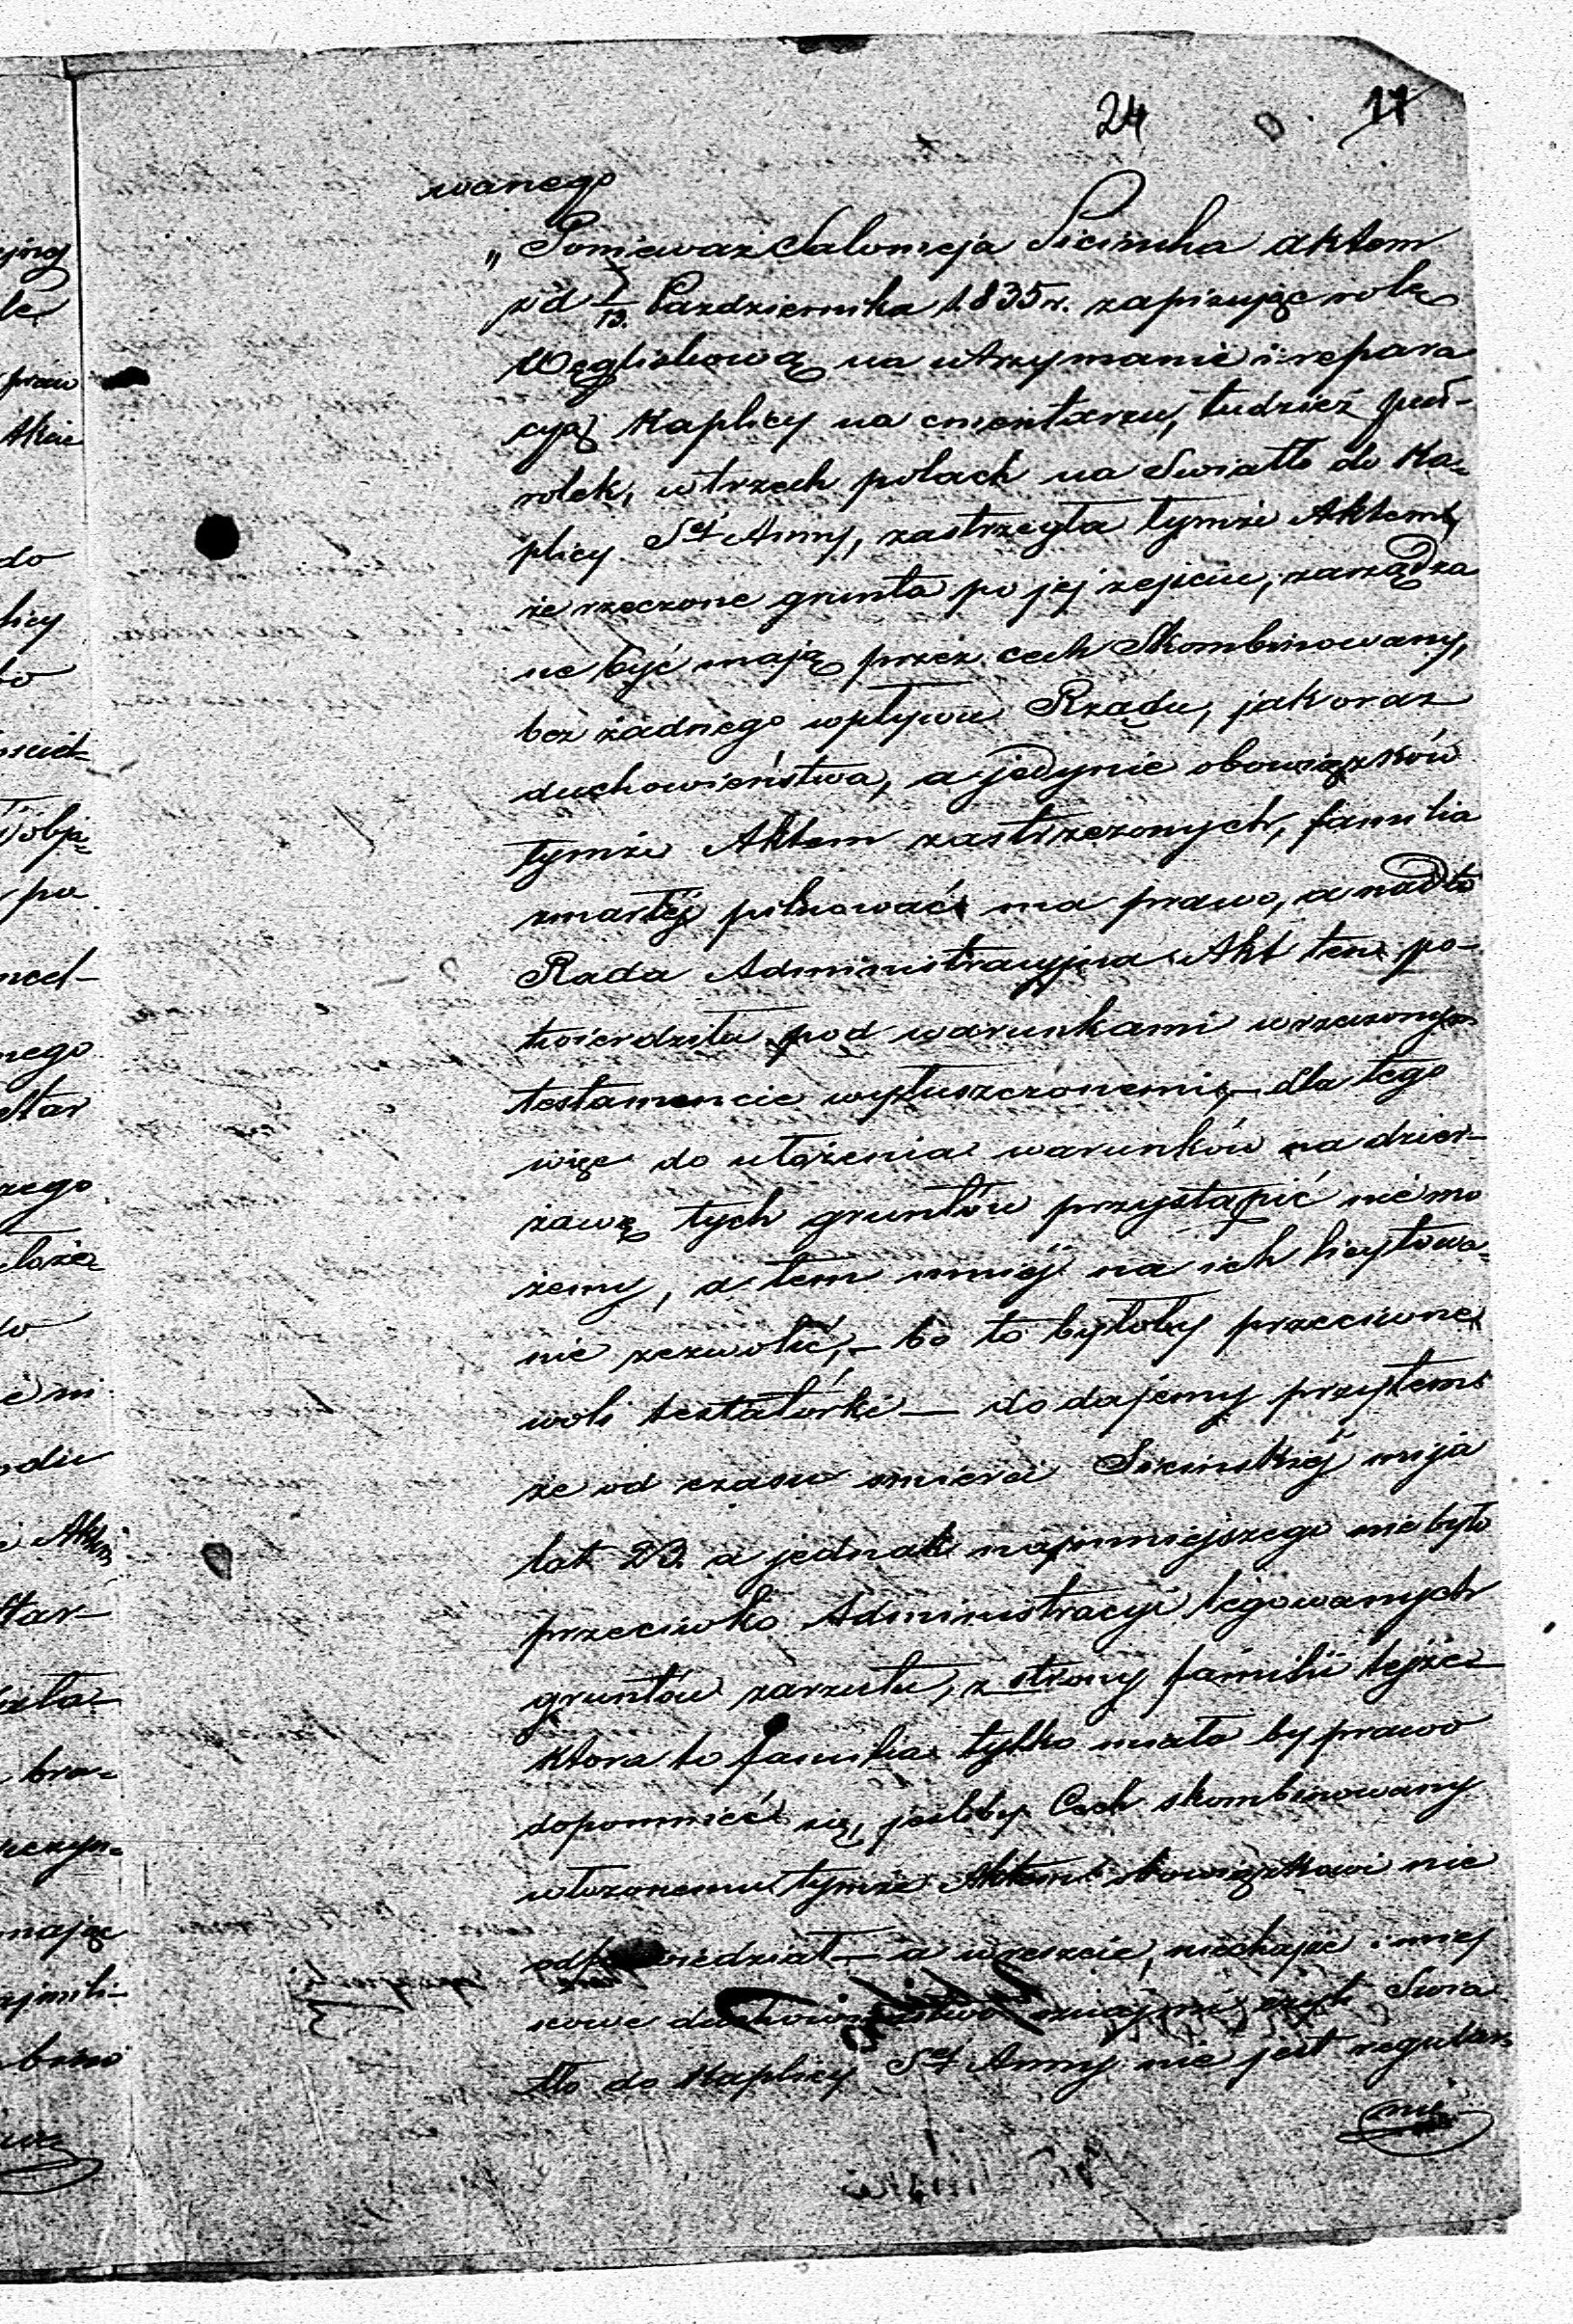 24 17
wanego
„Ponieważ Salomeja Sicińska aktem
z d 1/13. Października 1835 r. zapisując rolę
Węgliskową na utrzymanie i repara
cyą Kaplicy na cmentarzu, tudzież puł-
rolek, w trzech polach na Swiatło do Ka-
plicy Set Anny, zastrzegła tymże Aktem,
że rzeczone grunta po jej zejściu, zarządza
ne być mają przez cech Skombinowany,
bez żadnego wpływu Rządu, jak oraz
duchowieństwa, a jedynie obowiązków
tymże Aktem zastrzeżonych, familia
zmarłéj pilnować ma prawo, a nadto
Rada Administracyjna Akt ten po-
twierdziła pod warunkami w rzeczonym
testamencie wyłuszczonemi, – dla tego
więc do ułożenia warunków na dzier-
żawę tych gruntów przystąpić nie mo
żemy, a tem mniéj na ich licytowa-
nie zezwolić, – bo to byłoby przeciwne
woli testatorki – dodajemy przytem
że od czasu smierci Sicinskiéj mija
lat 23. a jednak najmniejszego nie było
przeciwko Administracyi legowanych
gruntów zarzutu, z strony familii tejże
która to familia tylko miała by prawo
dopomnieć się, jesliby Cech skombinowany
włożonemu tymże Aktem obowiązkowi nie
odpowiedział – a wreszcie, niechajże miej
scowe duchowieństwo oznajmi, czyli Swia
tło do Kaplicy Set Anny nie jest regular
nie